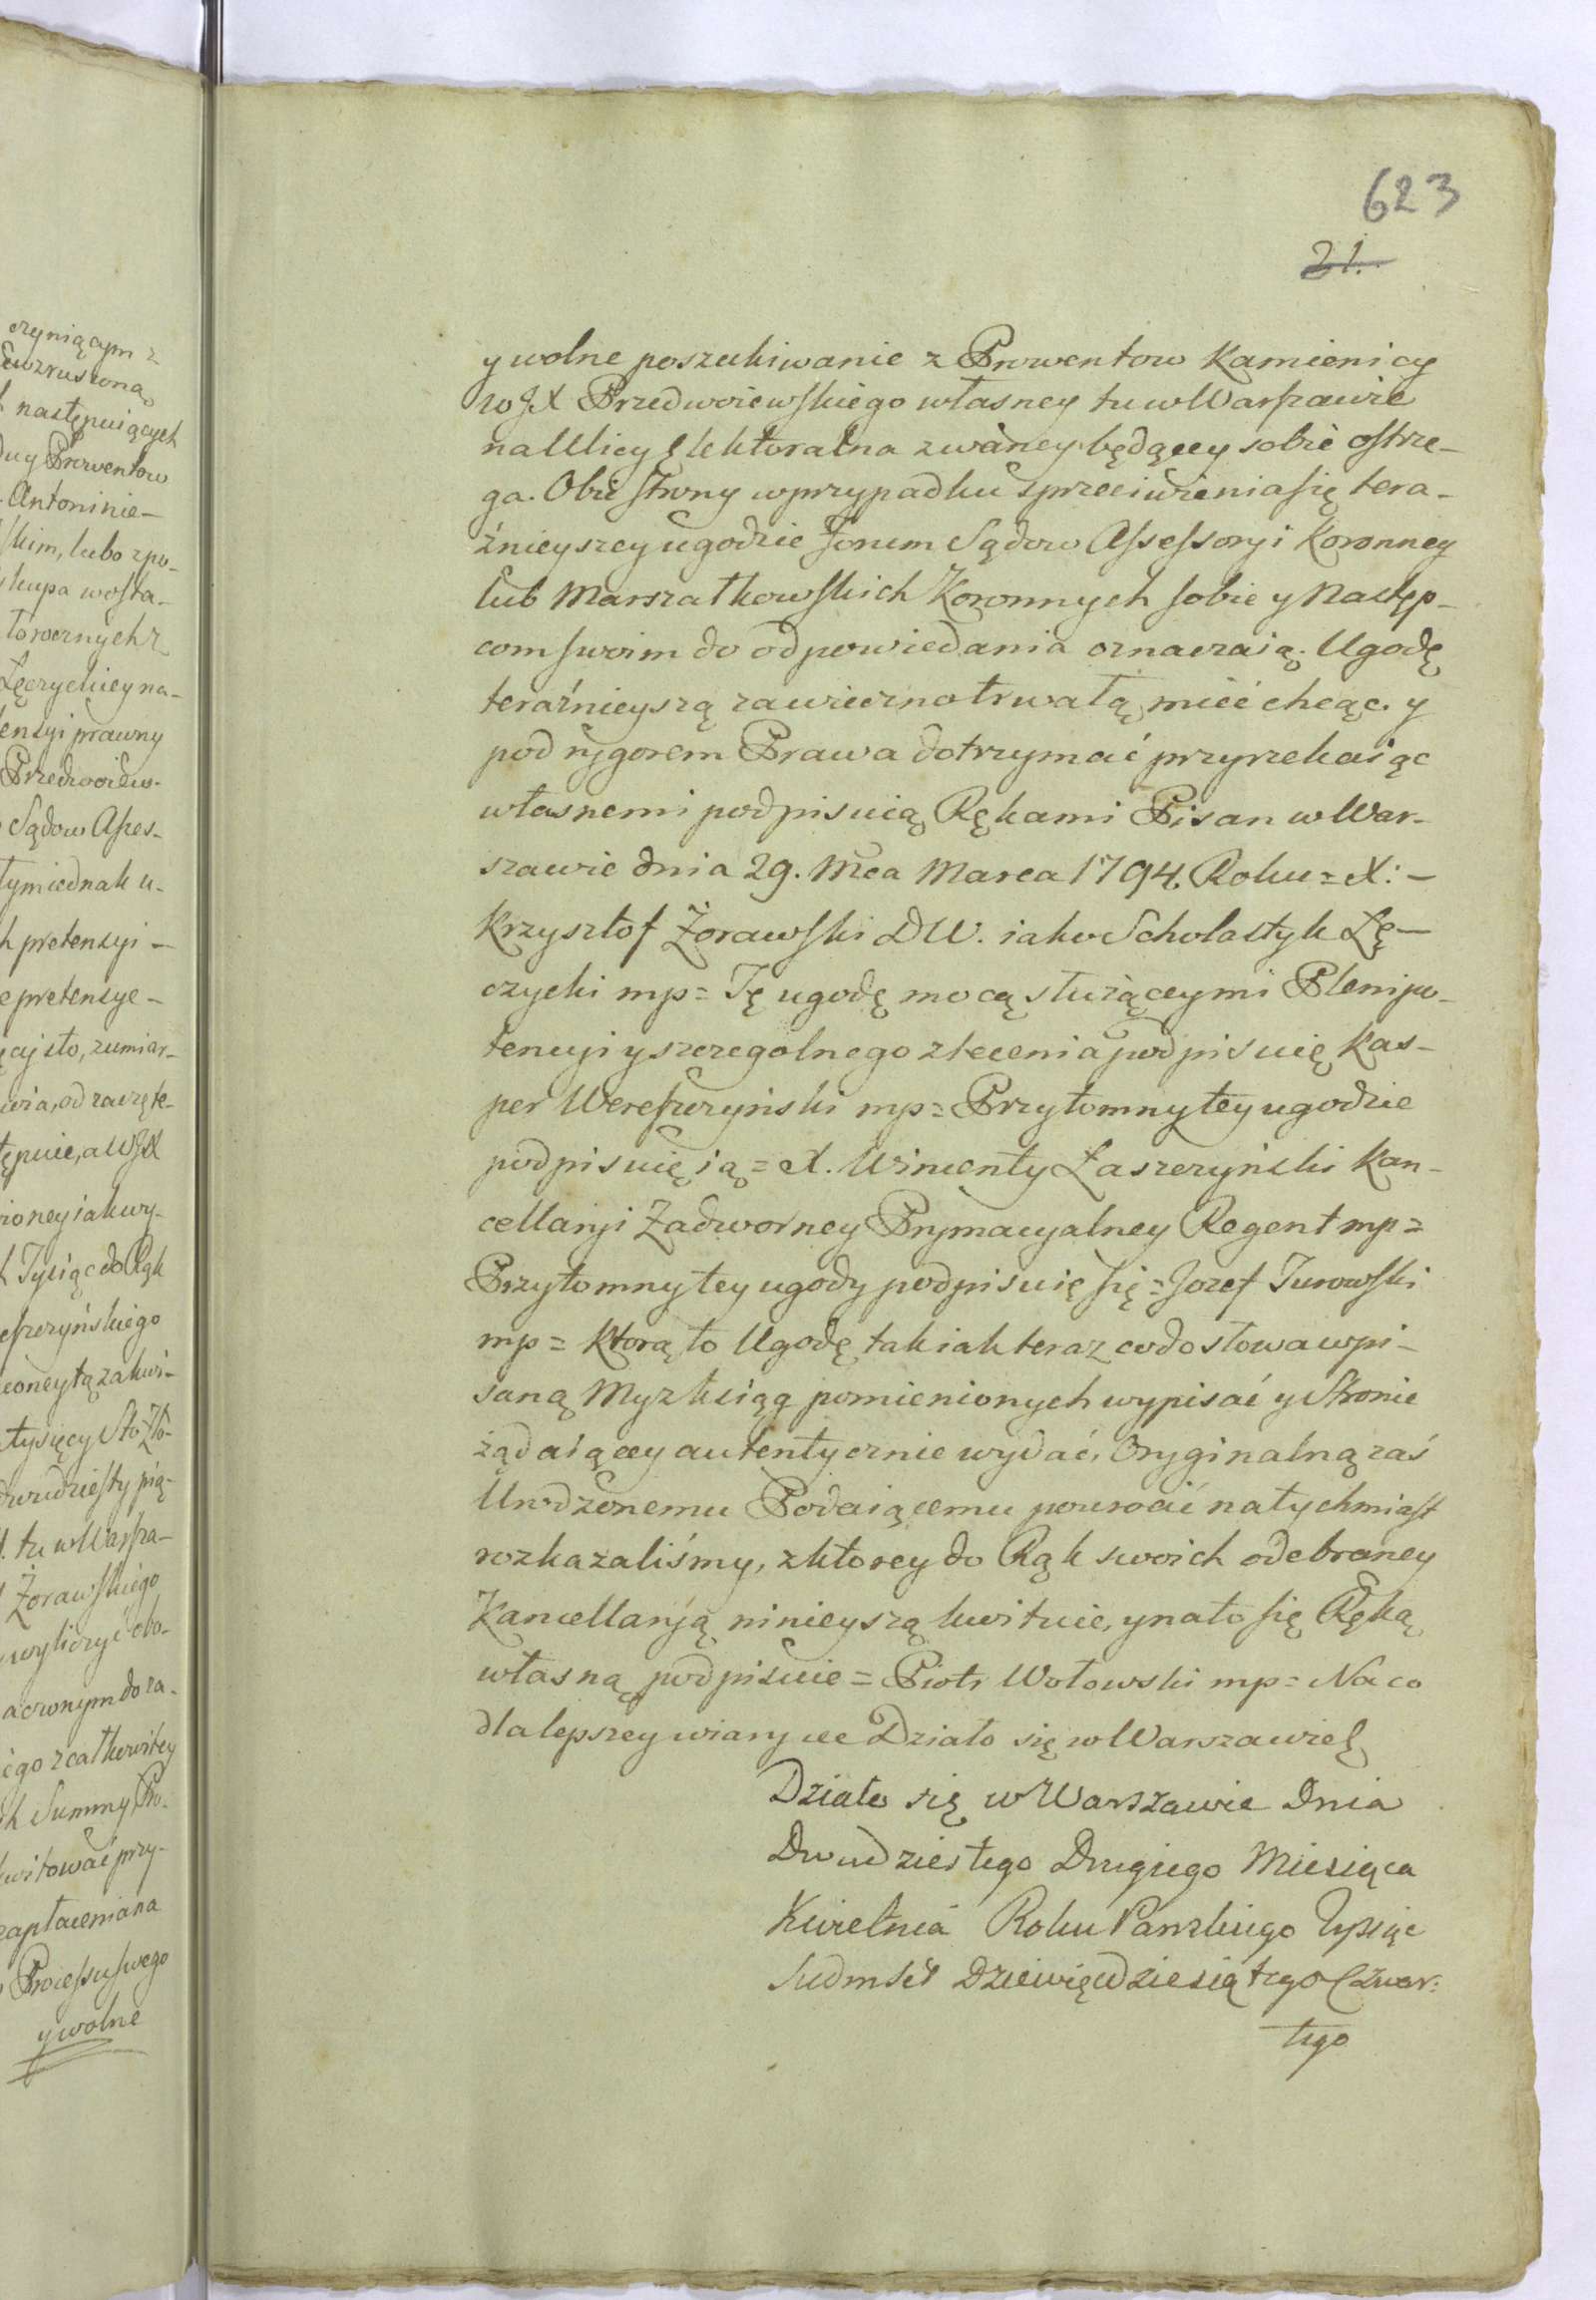 623
21.
czyniącym z
następuiących
Prowentow
Antoninie-
skim, lubo zpo-
kupa wosta-
Łęczyckiey na-
tensyi prawny
Przedwoiew-
Sądow Asses-
tym iednak u-
h pretensyi -
e pretensye -
wia, od zaczęte-
ępuie, a WJX
ioney iak wy-
h Tysiąc do Rąk
eszczyńskiego
tysięcy Sto Zło-
dwudziesty pią-
tu w Warsza-
Żorawskiego
wyliczyć obo-
h Summy Pro-
kwitować przy-
zapłacenia na
Processu swego
y wolne
y wolne poszukiwanie z Prowentow Kamienicy
WJX Przedwoiewskiego własney tu w Warszawie
na Ulicy Elektoralna zwaney będącey sobie ostrze-
ga. Obie strony w przypadku sprzeciwienia się tera-
źnieyszey ugodzie Forum Sądow Assessoryi Koronney
lub Marszałkowskich Koronnych sobie y Następ-
com swoim do odpowiedania oznaczaią. Ugodę
teraźnieyszą za wieczno trwałą mieć chcąc y
pod rygorem Prawa dotrzymać przyrzekaiąc
własnemi podpisuią Rękami Pisan w War-
szawie dnia 29. Mca Marca 1794. Roku = X: -
Krzysztof Żorawski DW. iako Scholastyk Łę-
czycki mp = Tę ugodę mocą służącey mi Plenipo-
tencyi y szczegolnego zlecenia podpisuię Kas-
per Wereszczyński mp = Przytomny tey ugodzie
podpisuię ią = X. Wincenty Łaszczyński Kan-
cellaryi Zadworney Prymacyalney Regent mp =
Przytomny tey ugody podpisuię się = Jozef Turowski
mp = Ktorą to Ugodę tak iak teraz co do słowa wpi-
saną My z ksiąg pomienionych wypisać y Stronie
żądaiącey autentycznie wydać, Oryginalną zaś
Urodzonemu Podaiącemu powrocić natychmiast
rozkazaliśmy, z ktorey do Rąk swoich odebraney
Kancellaryą ninieyszą kwituie, y na to się Ręką
własną podpisuie = Piotr Wołowski mp = Na co
dla lepszey wiary ec Działo się w Warszawie
Działo się w Warszawie Dnia
Dwudziestego Drugiego Miesiąca
Kwietnia Roku Panskiego Tysiąc
Siedmset Dziewięćdziesiątego Czwar:
tego